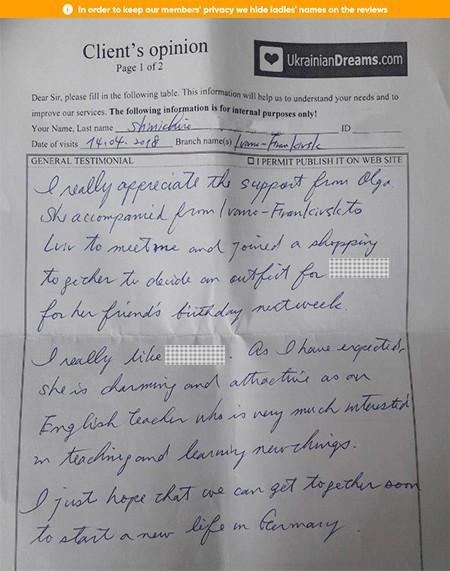 In order to keep our members' privacy we hide ladies' names on the reviews
Client's opinion
Page 1 of 2
UkrainianDreams.com
Dear Sir, please fill in the following table. This information will help us to understand your needs and to
improve our services. The following information is for internal purposes only!
Your Name, Last name Shinichiro ID
Date of visits 14.04.2018 Branch name(s) Ivano-Frankivsk
GENERAL TESTIMONIAL ☐ I PERMIT PUBLISH IT ON WEB SITE
I really appreciate the support from Olga.
She accompanied from Ivano-Frankivsk to
Lviv to meet me and joined a shopping
together to decide an outfit for
for her friend's birthday next week.
I really like . As I have expected,
she is charming and attractive as an
English teacher who is very much interested
in teaching and learning new things.
I just hope that we can get together soon
to start a new life in Germany.